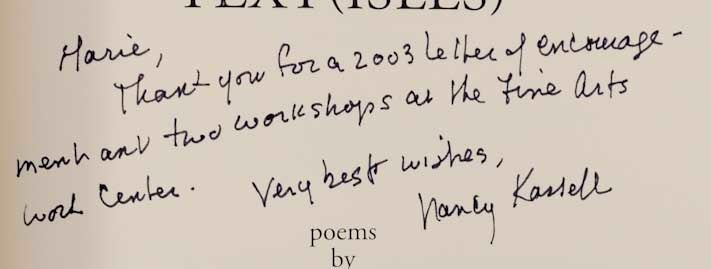 TEXT(ISLES)
Marie,
Thank you for a 2003 letter of encourage-
ment and two workshops at the Fine Arts
Work Center. Very best wishes,
Nancy Kassell
poems
by